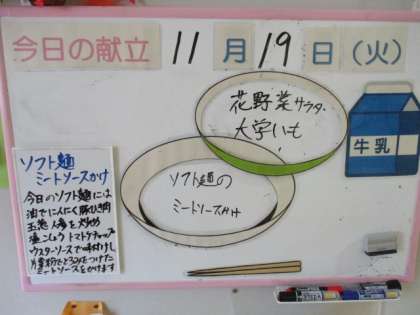 今日の献立 11月19日(火)
花野菜サラダ
大学いも
牛乳
ソフト麺の
ミートソースかけ
ソフト麺
ミートソースかけ
今日のソフト麺には
油でにんにく豚ひき肉
玉葱人参を炒め
塩こしょうトマトケチャップ
ウスターソースで味付けし
片栗粉でとろみをつけた
ミートソースをかけます